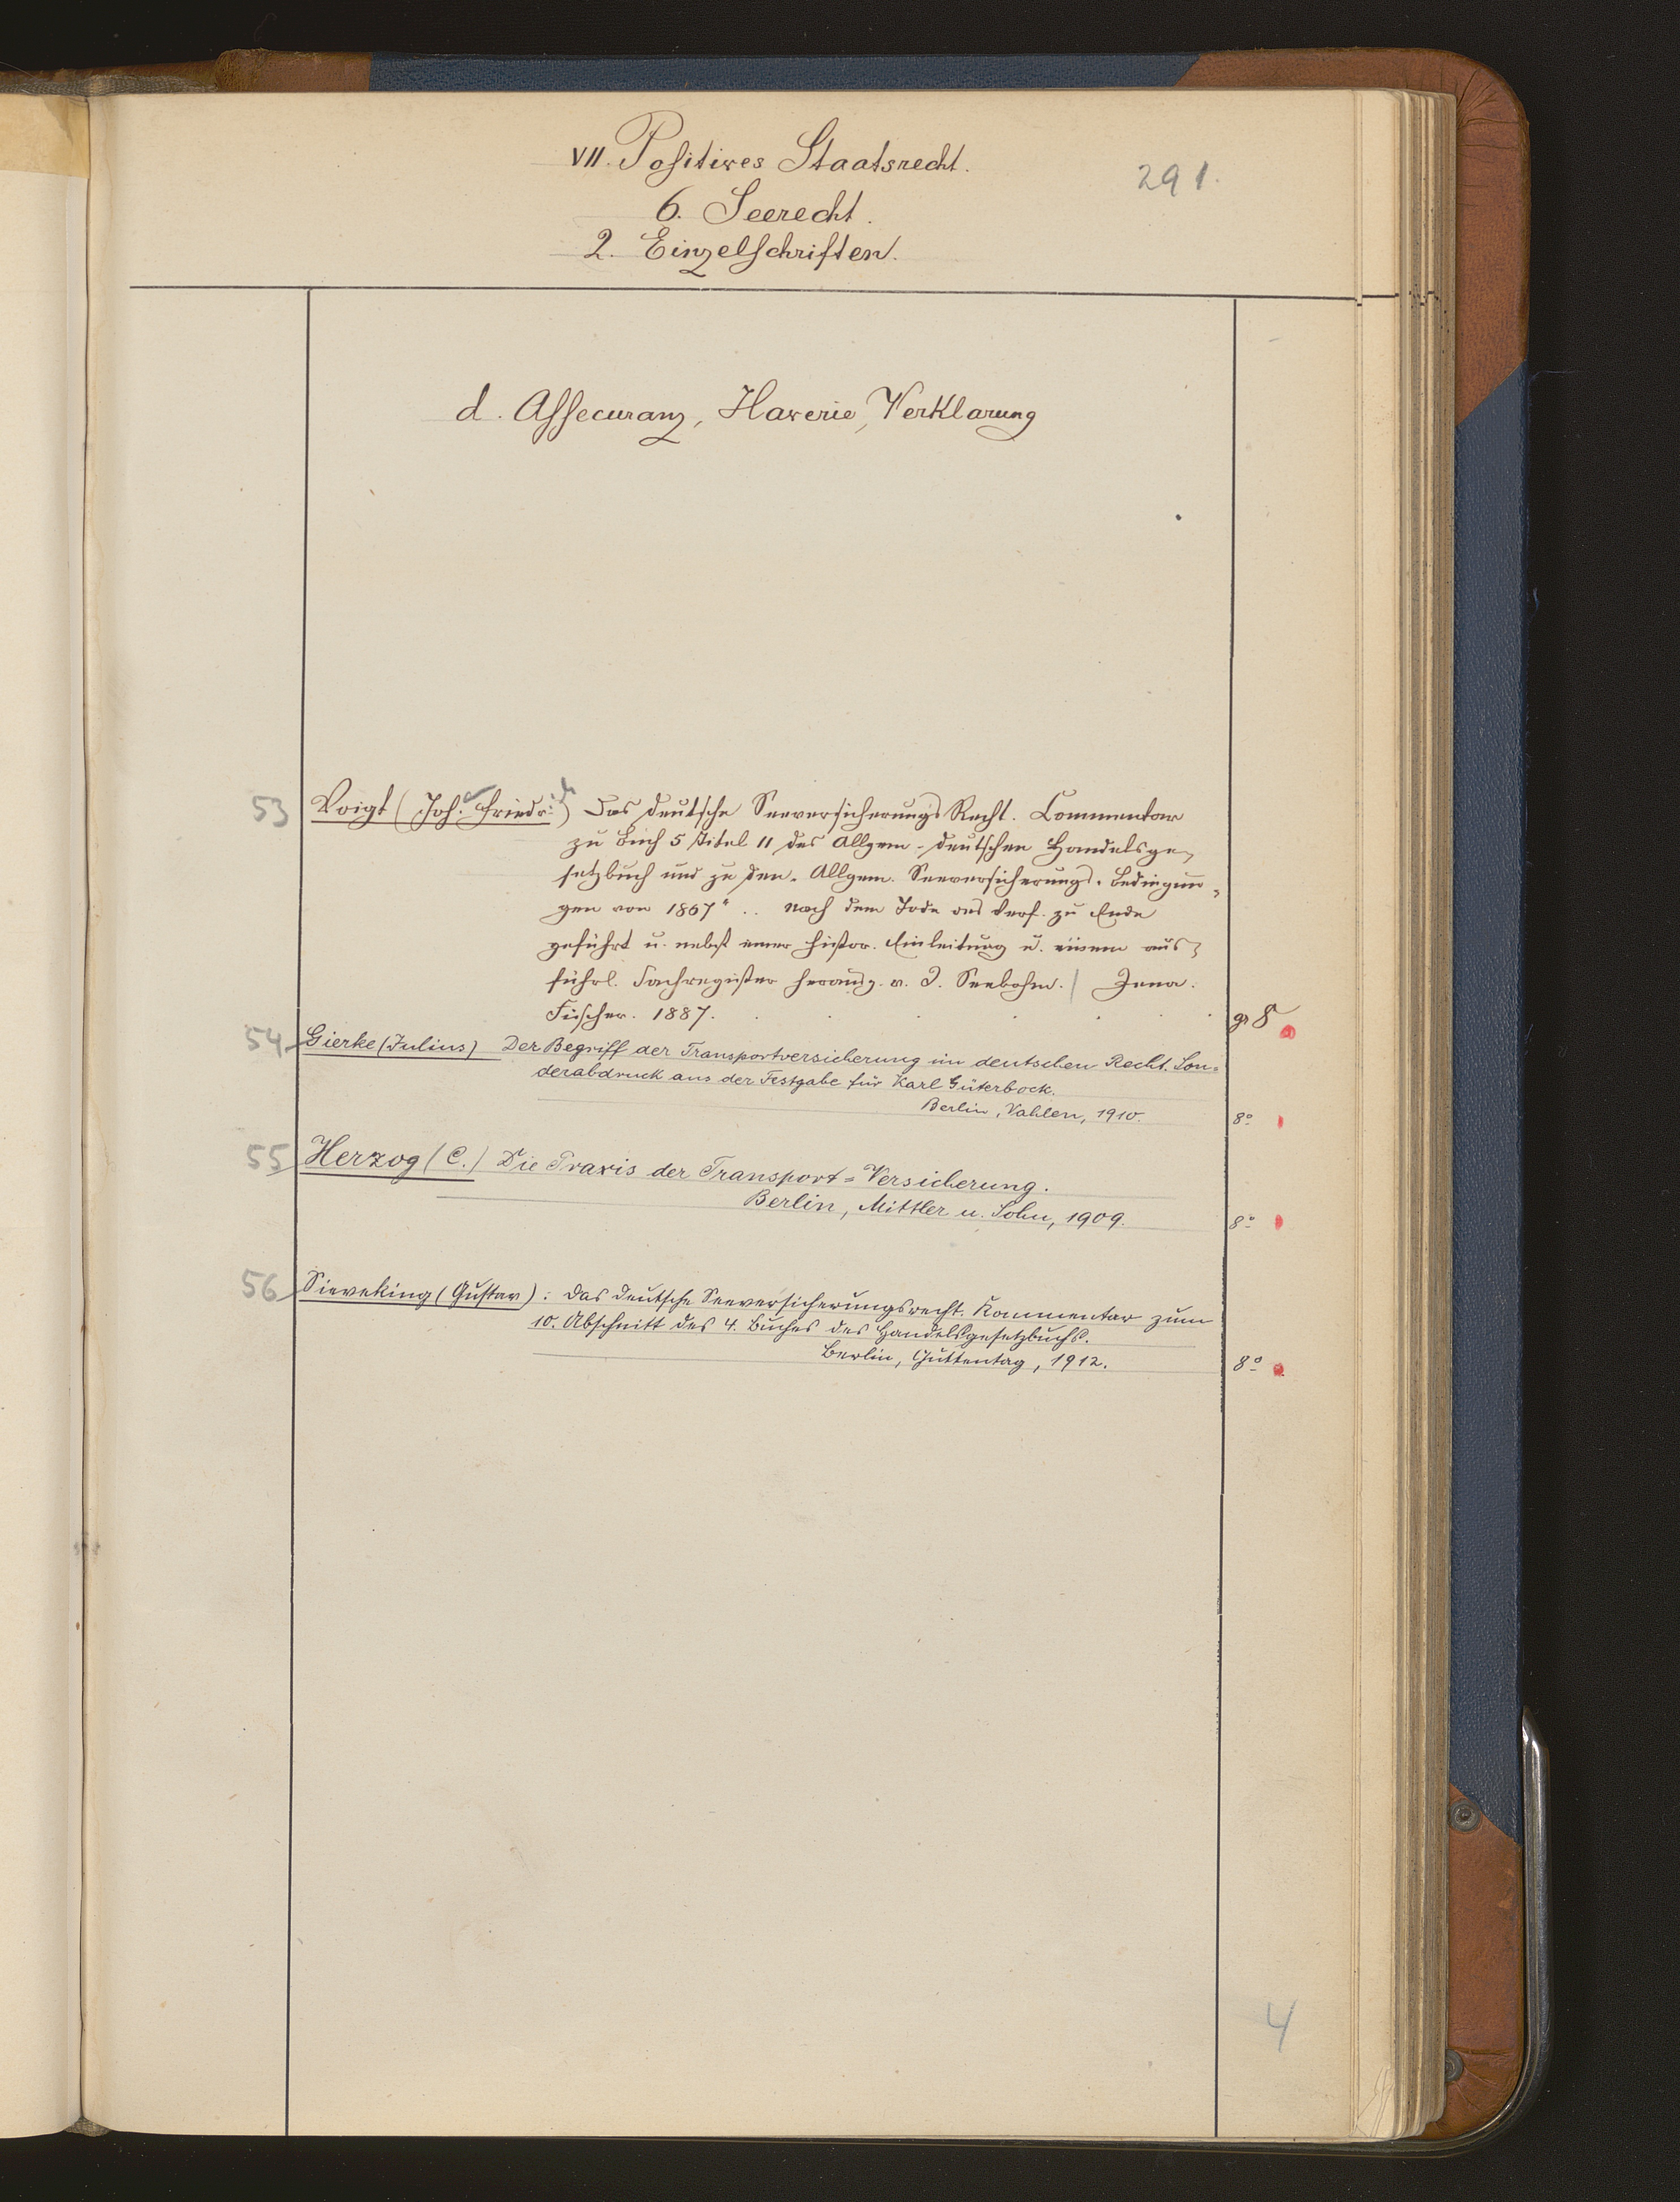 VII. Positives Staatsrecht.
291.
6. Seerecht.
2. Einzelschriften.
d. Assecuranz, Haverie, Verklarung
53 Voigt (Joh. Friedr.) Das deutsche Seeversicherungs Recht. Commentar
zu Buch 5 Titel 11 des Allgem. deutschen Handelsge-
setzbuch und zu den „Allgem. Seeversicherungs-Bedingun-
gen von 1867“ .. Nach dem Tode des Verf. zu Ende
geführt u. nebst einer histor. Einleitung u. einem aus-
führl. Sachregister herausg. v. Seebohm. / Jena.
Fischer. 1887. gr 8
54 Gierke (Julius) Der Begriff der Transportversicherung im deutschen Recht. Son=
derabdruck aus der Festgabe für Karl Güterbock.
Berlin, Vahlen, 1910. 8°
55 Herzog (C.) Die Praxis der Transport=Versicherung.
Berlin, Mittler u. Sohn, 1909. 8°
56 Sieveking (Gustav): Das deutsche Seeversicherungsrecht. Kommentar zum
10. Abschnitt des 4. Buches des Handelsgesetzbuchs.
Berlin, Guttentag, 1912. 8°
4